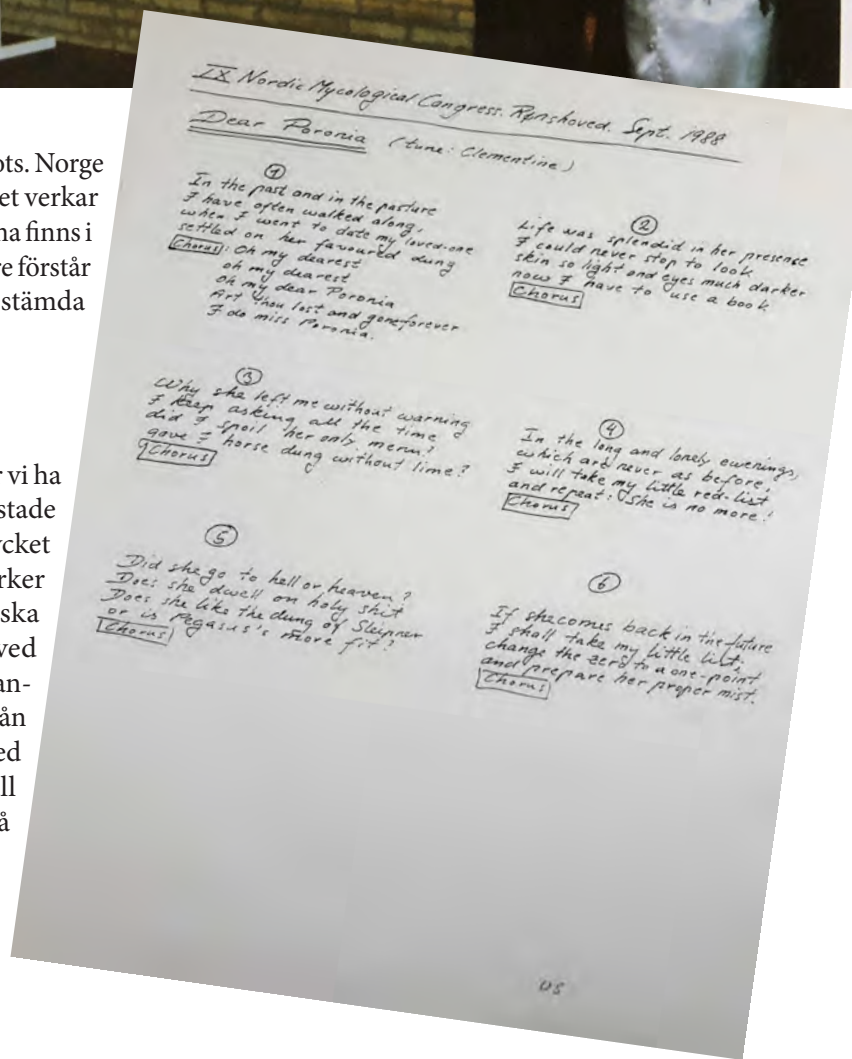 ots. Norge
et verkar
na finns i
re förstår
stämda
r vi ha
stade
cket
rker
ska
ved
an-
ån
ed
ll
å
IX Nordic Mycological Congress. Rønshoved. Sept. 1988
Dear Poronia (tune: Clementine)
1
In the past and in the pasture
I have often walked along,
when I went to date my loved-one
settled on her favoured dung
Chorus: Oh my dearest
oh my dearest
Oh my dear Poronia
Art thou lost and gone forever
I do miss Poronia.
2
Life was splendid in her presence
I could never stop to look
skin so light and eyes much darker
now I have to use a book
Chorus
3
Why she left me without warning
I keep asking all the time
did I spoil her only menu?
gave I horse dung without lime?
Chorus
4
In the long and lonely owenings,
which are never as before,
I will take my little red-list
and repeat: She is no more!
Chorus
5
Did she go to hell or heaven?
Does she dwell on holy shit
Does she like the dung of Sleipner
or is Pegasus's more fit?
Chorus
6
If she comes back in the future
I shall take my little list,
change the zero to a one-point
and prepare her proper mist.
Chorus
US